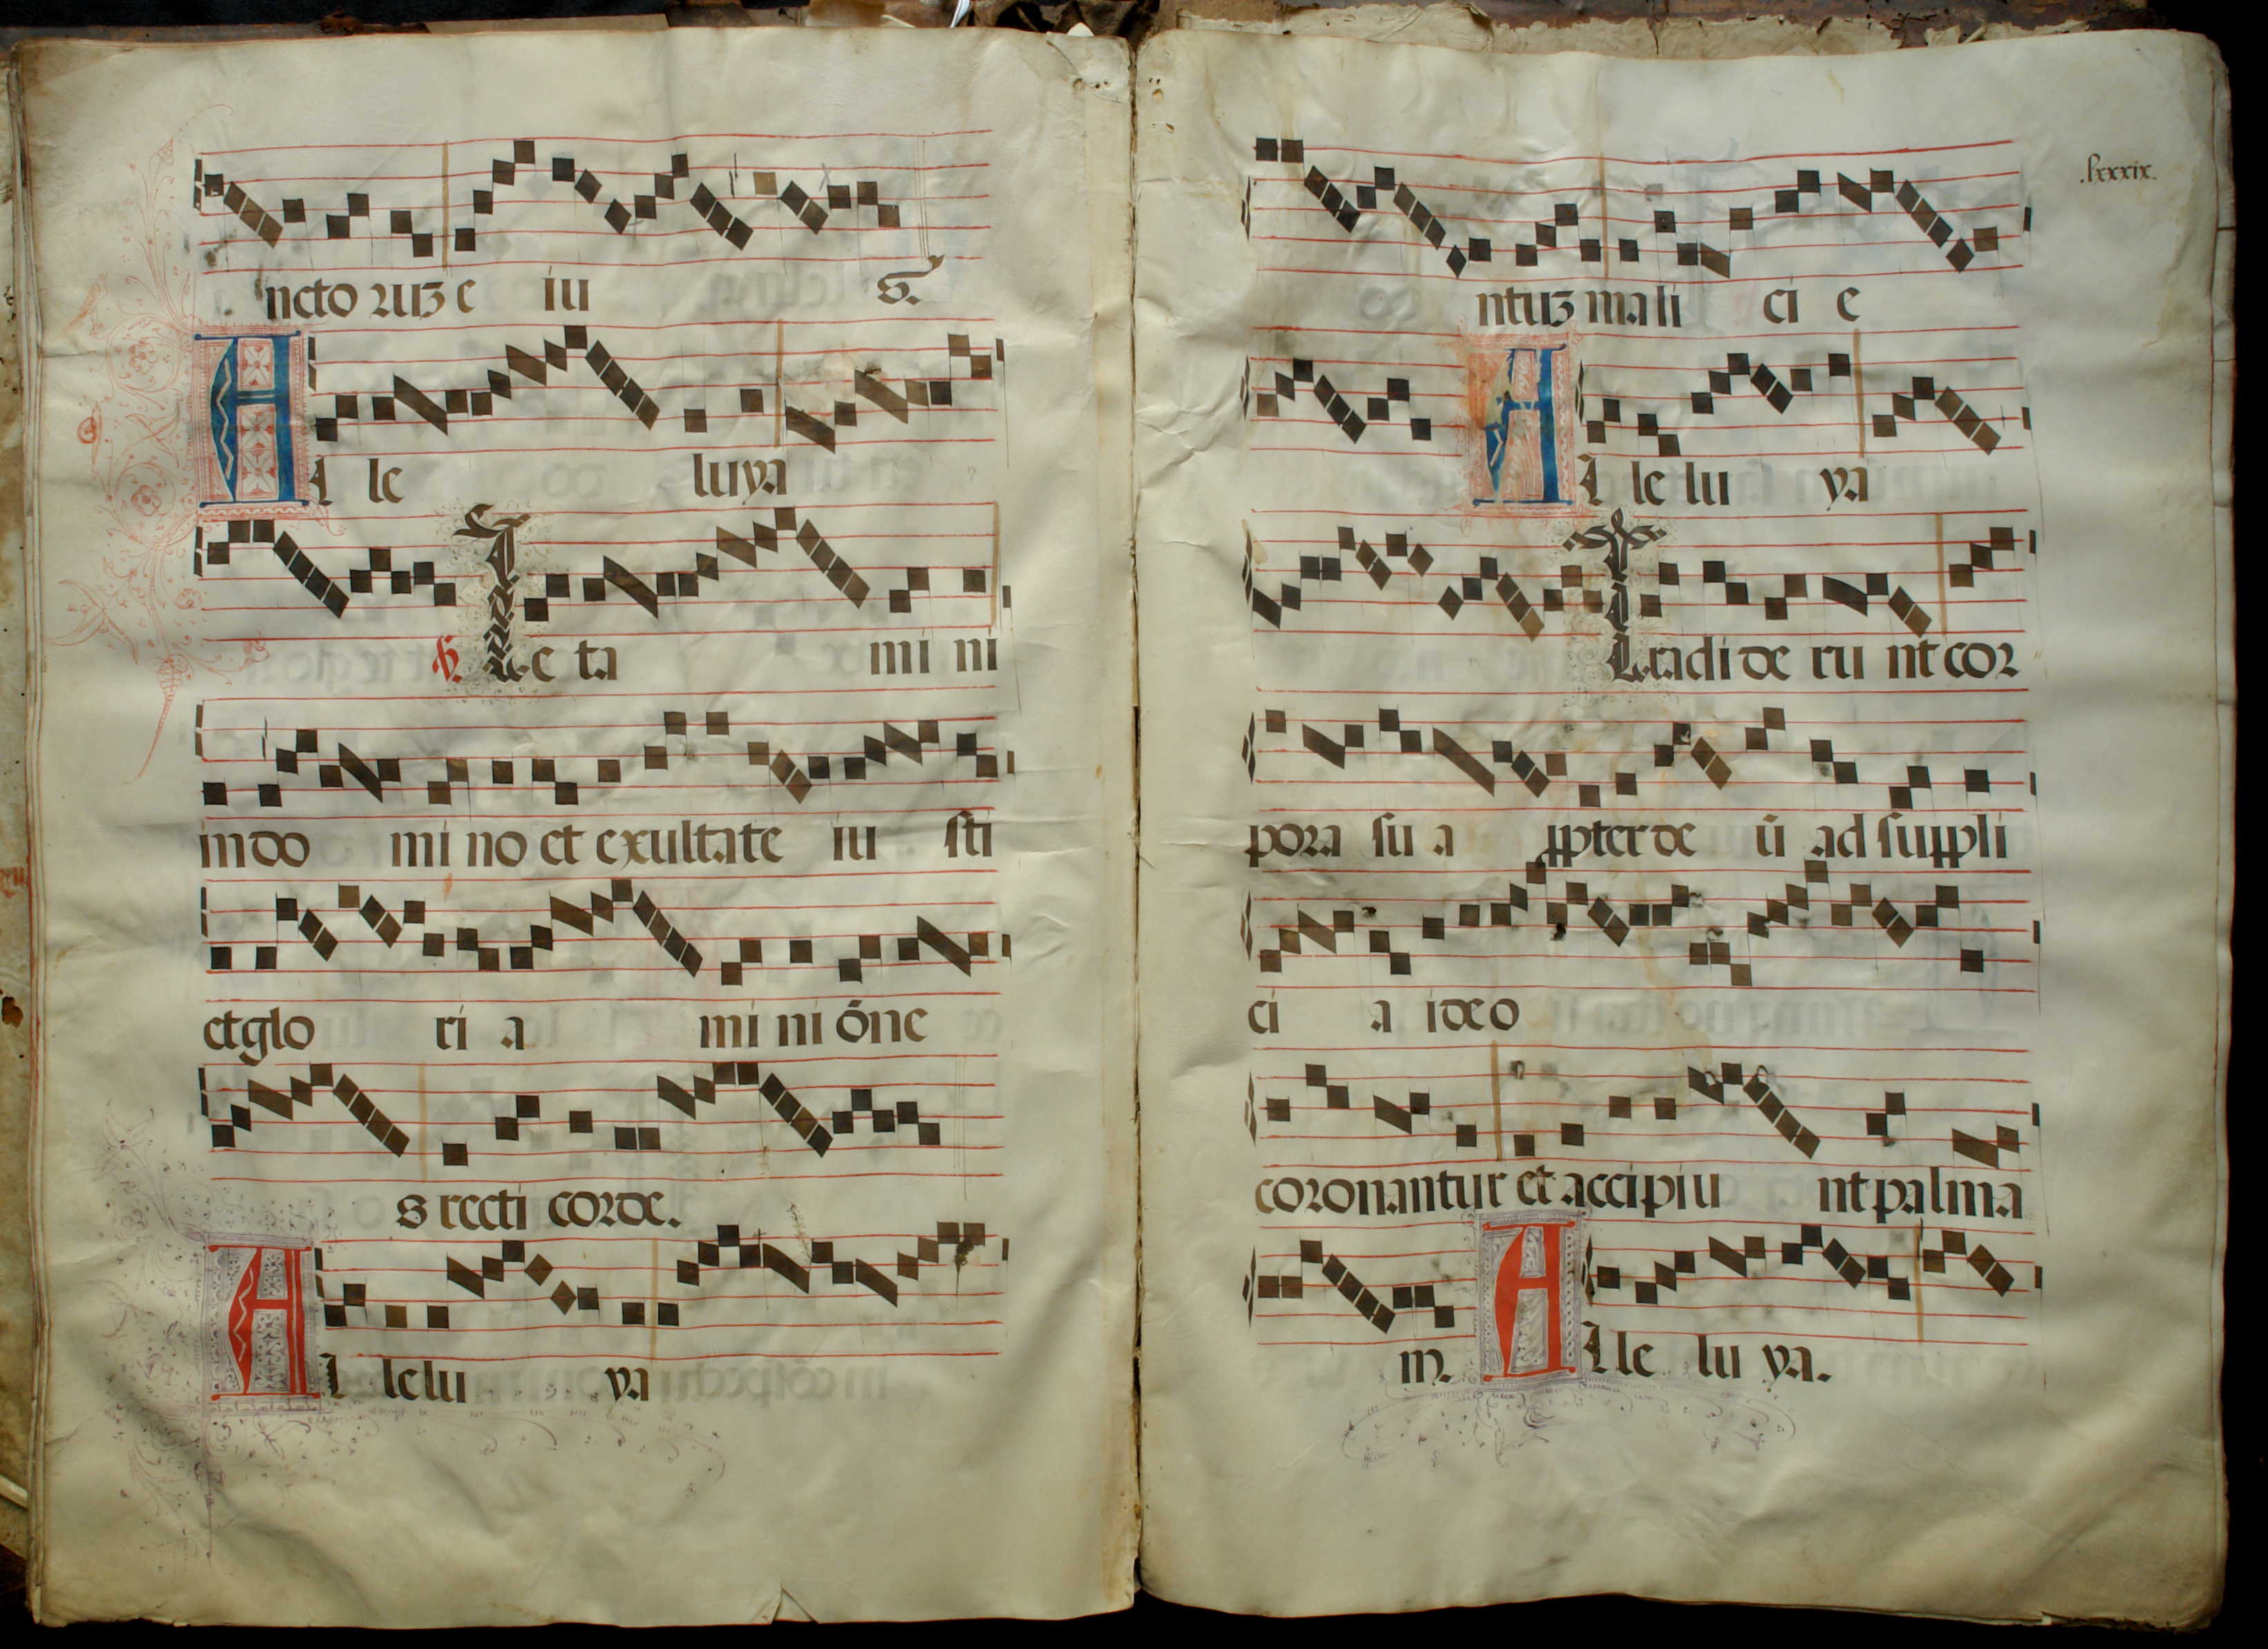 ncto ꝛuʒ e iu s.
A l le luya
℣. Le ta mi ni
in do mi no et exultate iu sti
et glo ri a mi ni õne
s recti corde.
A l le lu ya
.lxxxix.
co ntuʒ mali ci e
A l le lu ya
Tradi de ru nt cor
pora su a ꝓpter de ũ ad suppli
ci a ideo
coronantur et accipiu nt palma
m. A l le lu ya.